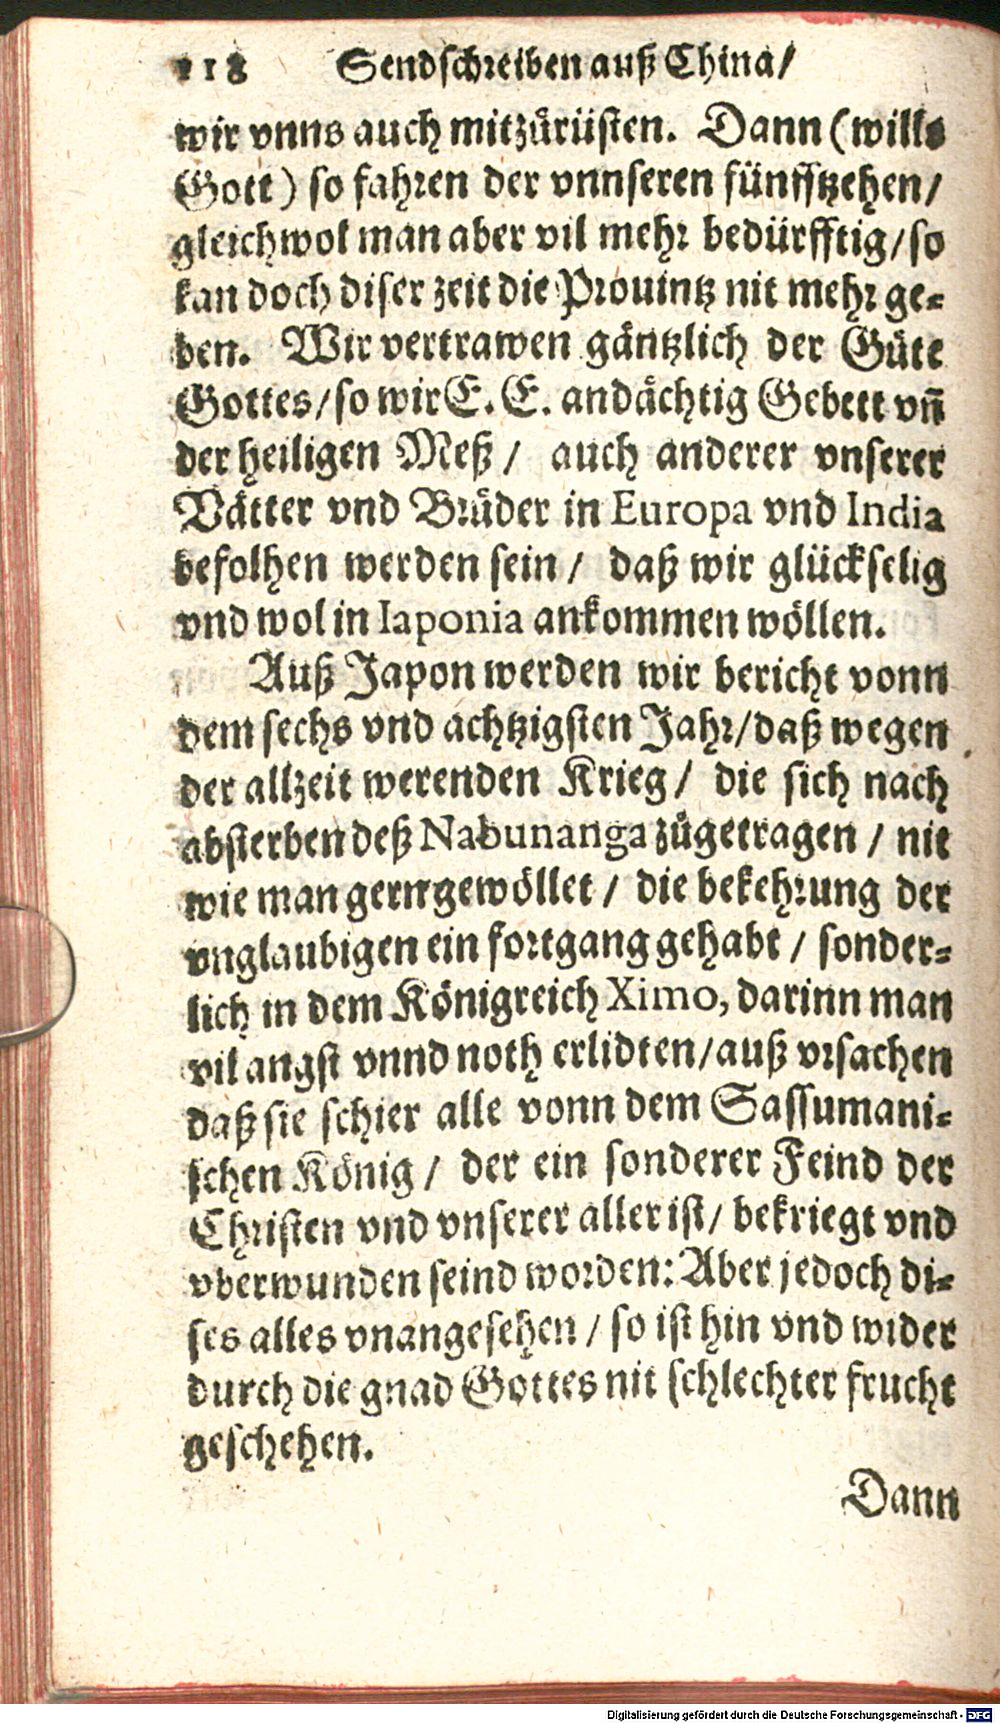 118 Sendschreiben auß China/
wir vnns auch mitzůrüsten. Dann (wills
Gott) so fahren der vnnseren fünfftzehen/
gleichwol man aber vil mehr bedürfftig/so
kan doch diser zeit die Prouintz nit mehr ge-
ben. Wir vertrawen gäntzlich der Güte
Gottes/so wir E. E. andächtig Gebett vñ
der heiligen Meß/ auch anderer vnserer
Vätter vnd Brüder in Europa vnd India
befolhen werden sein/ daß wir glückselig
vnd wol in Iaponia ankommen wöllen.
Auß Japon werden wir bericht vonn
dem sechs vnd achtzigsten Jahr/daß wegen
der allzeit werenden Krieg/ die sich nach
absterben deß Nabunanga zůgetragen/ nit
wie man gern gewöllet/ die bekehrung der
vnglaubigen ein fortgang gehabt/ sonder-
lich in dem Königreich Ximo, darinn man
vil angst vnnd noth erlidten/auß vrsachen
daß sie schier alle vonn dem Sassumani-
schen König/ der ein sonderer Feind der
Christen vnd vnserer aller ist/ bekriegt vnd
vberwunden seind worden: Aber jedoch di-
ses alles vnangesehen/ so ist hin vnd wider
durch die gnad Gottes nit schlechter frucht
geschehen.
Dann
Digitalisierung gefördert durch die Deutsche Forschungsgemeinschaft - DFG